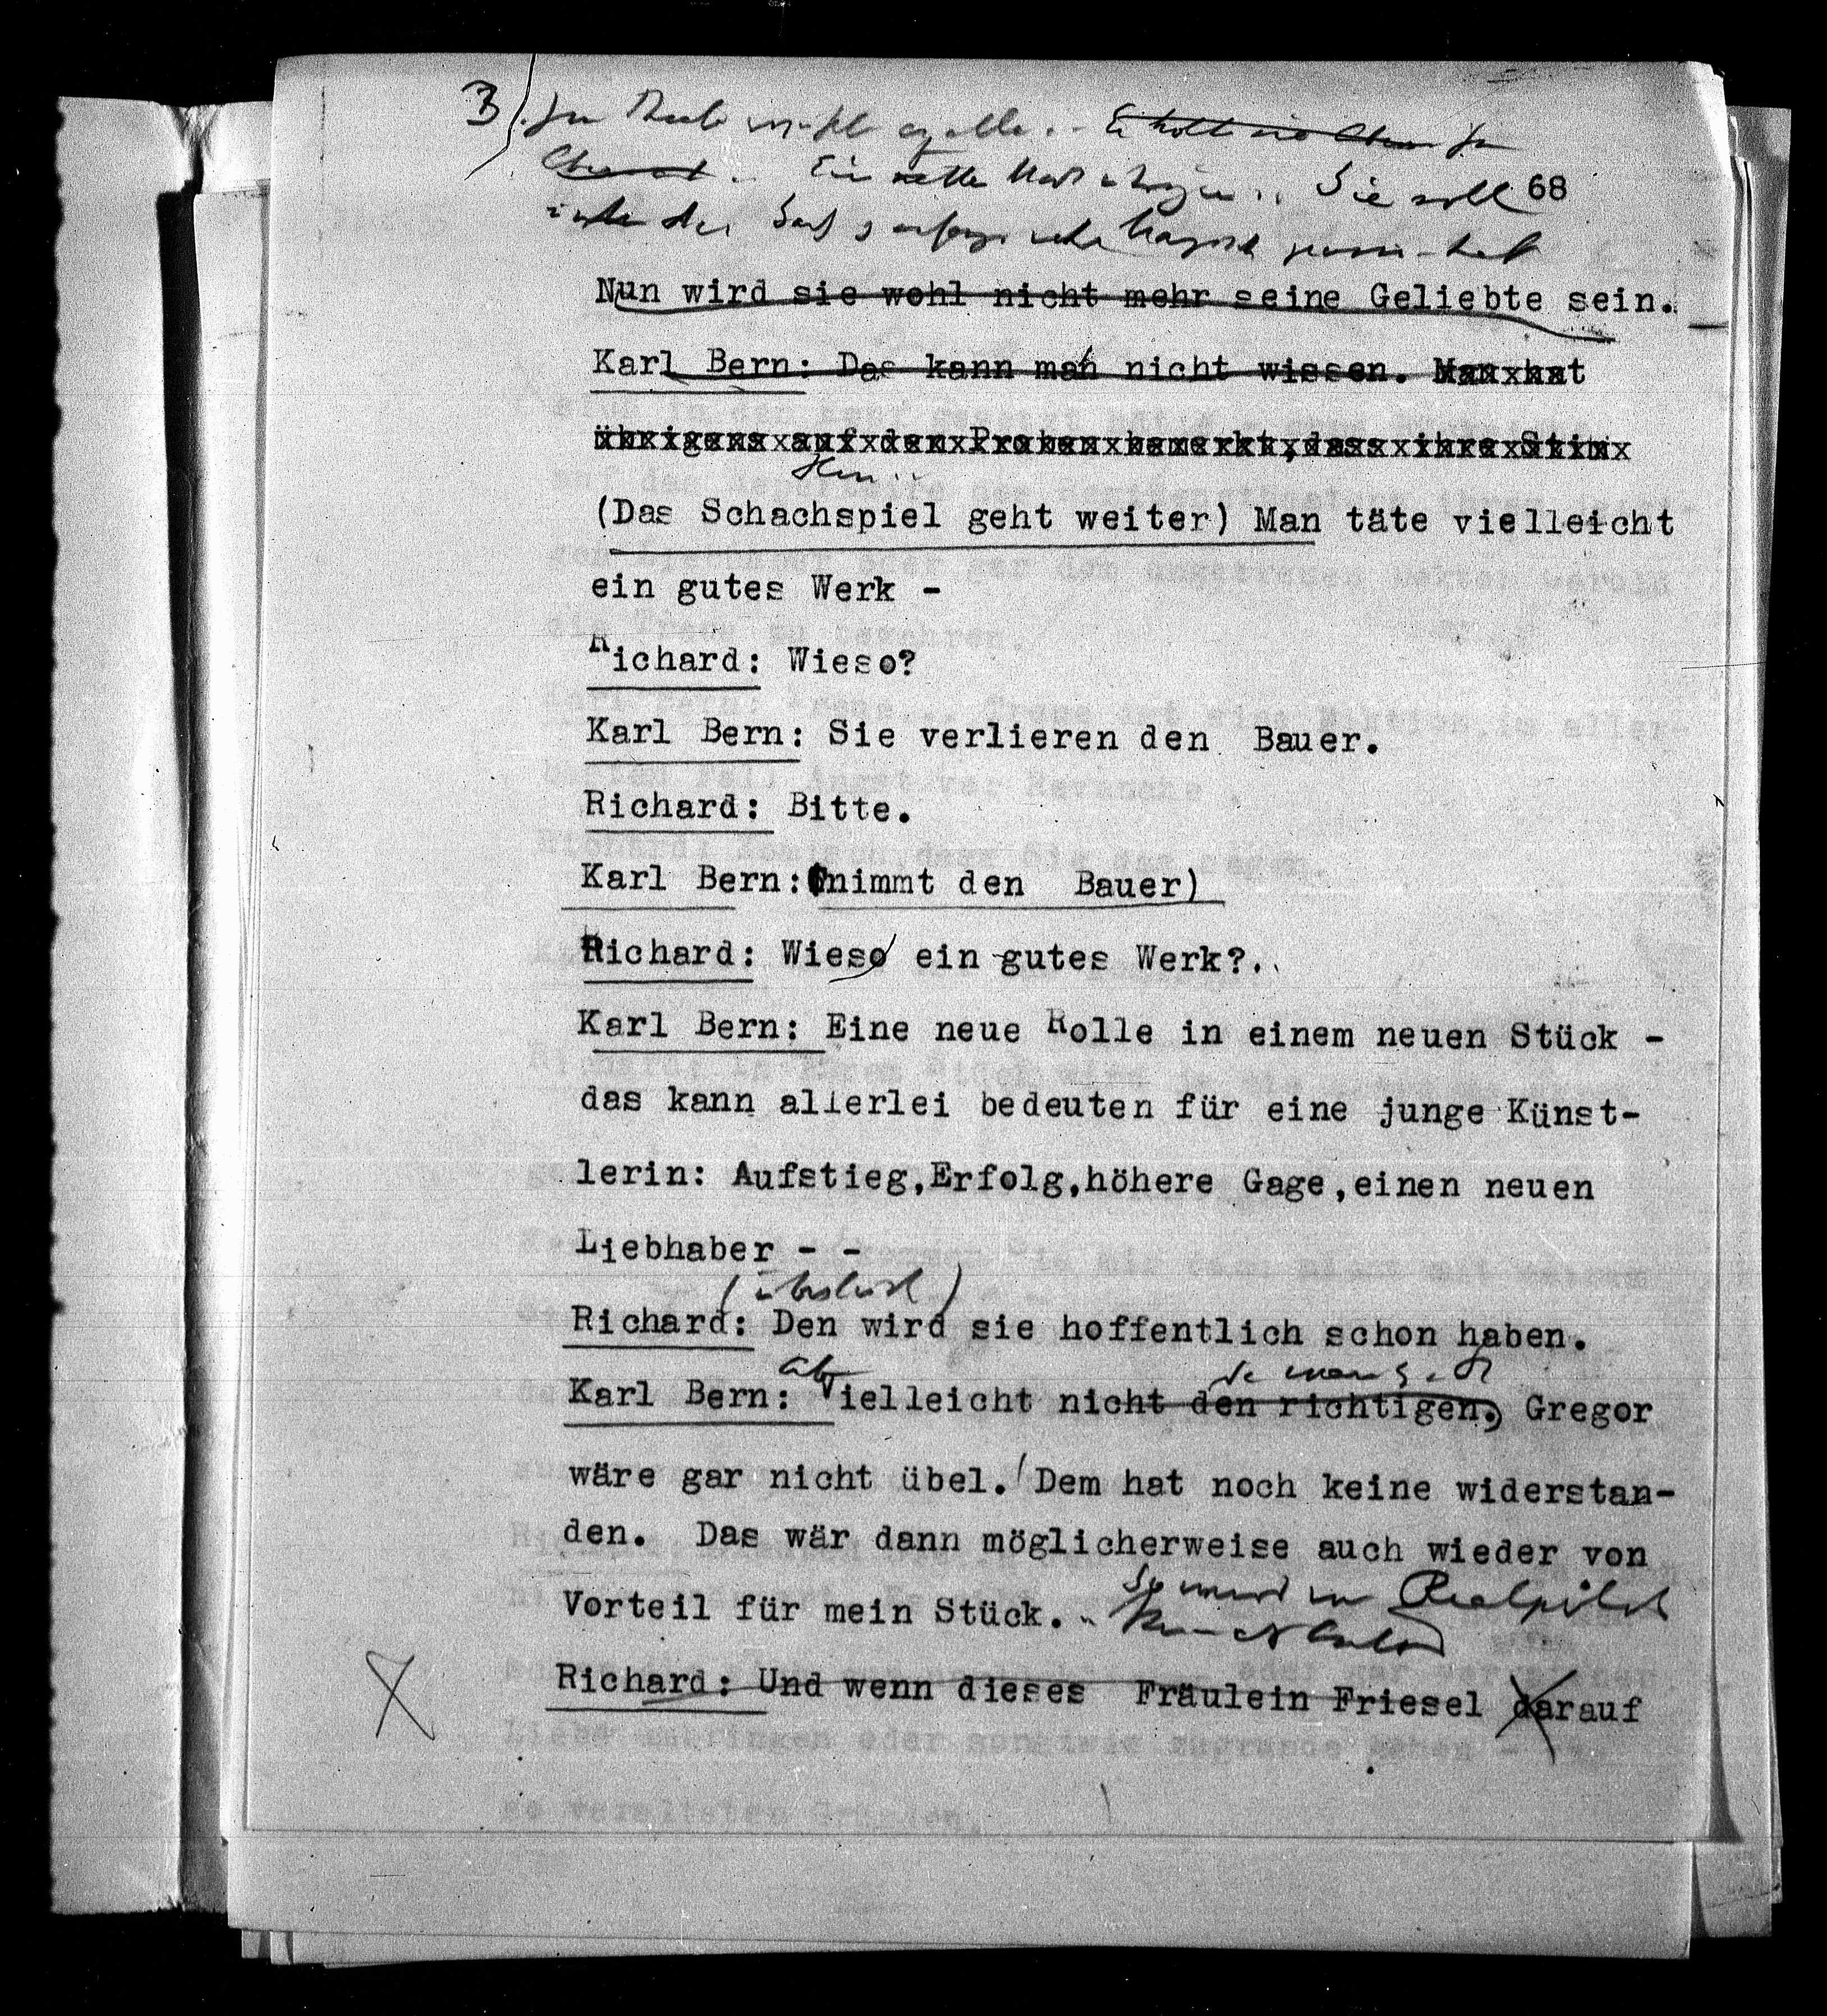 B
Sie soll 68
Nun wird sie wohl nicht mehr seine Geliebte sein.
Karl Bern: Das kann man nicht wissen. Man hat
übrigens auf den Proben bemerkt, dass ihre Stim
Hm..
(Das Schachspiel geht weiter) Man täte vielleicht
ein gutes Werk -
Richard: Wieso?
Karl Bern: Sie verlieren den Bauer.
Richard: Bitte.
Karl Bern: (nimmt den Bauer)
Richard: Wieso ein gutes Werk?..
Karl Bern: Eine neue Rolle in einem neuen Stück -
das kann allerlei bedeuten für eine junge Künst-
lerin: Aufstieg,Erfolg,höhere Gage,einen neuen
Liebhaber - -
Richard: Den wird sie hoffentlich schon haben.
Karl Bern: Vielleicht nicht den richtigen. Gregor
wäre gar nicht übel. Dem hat noch keine widerstan-
den. Das wär dann möglicherweise auch wieder von
Vorteil für mein Stück.
Richard: Und wenn dieses Fräulein Friesel darauf